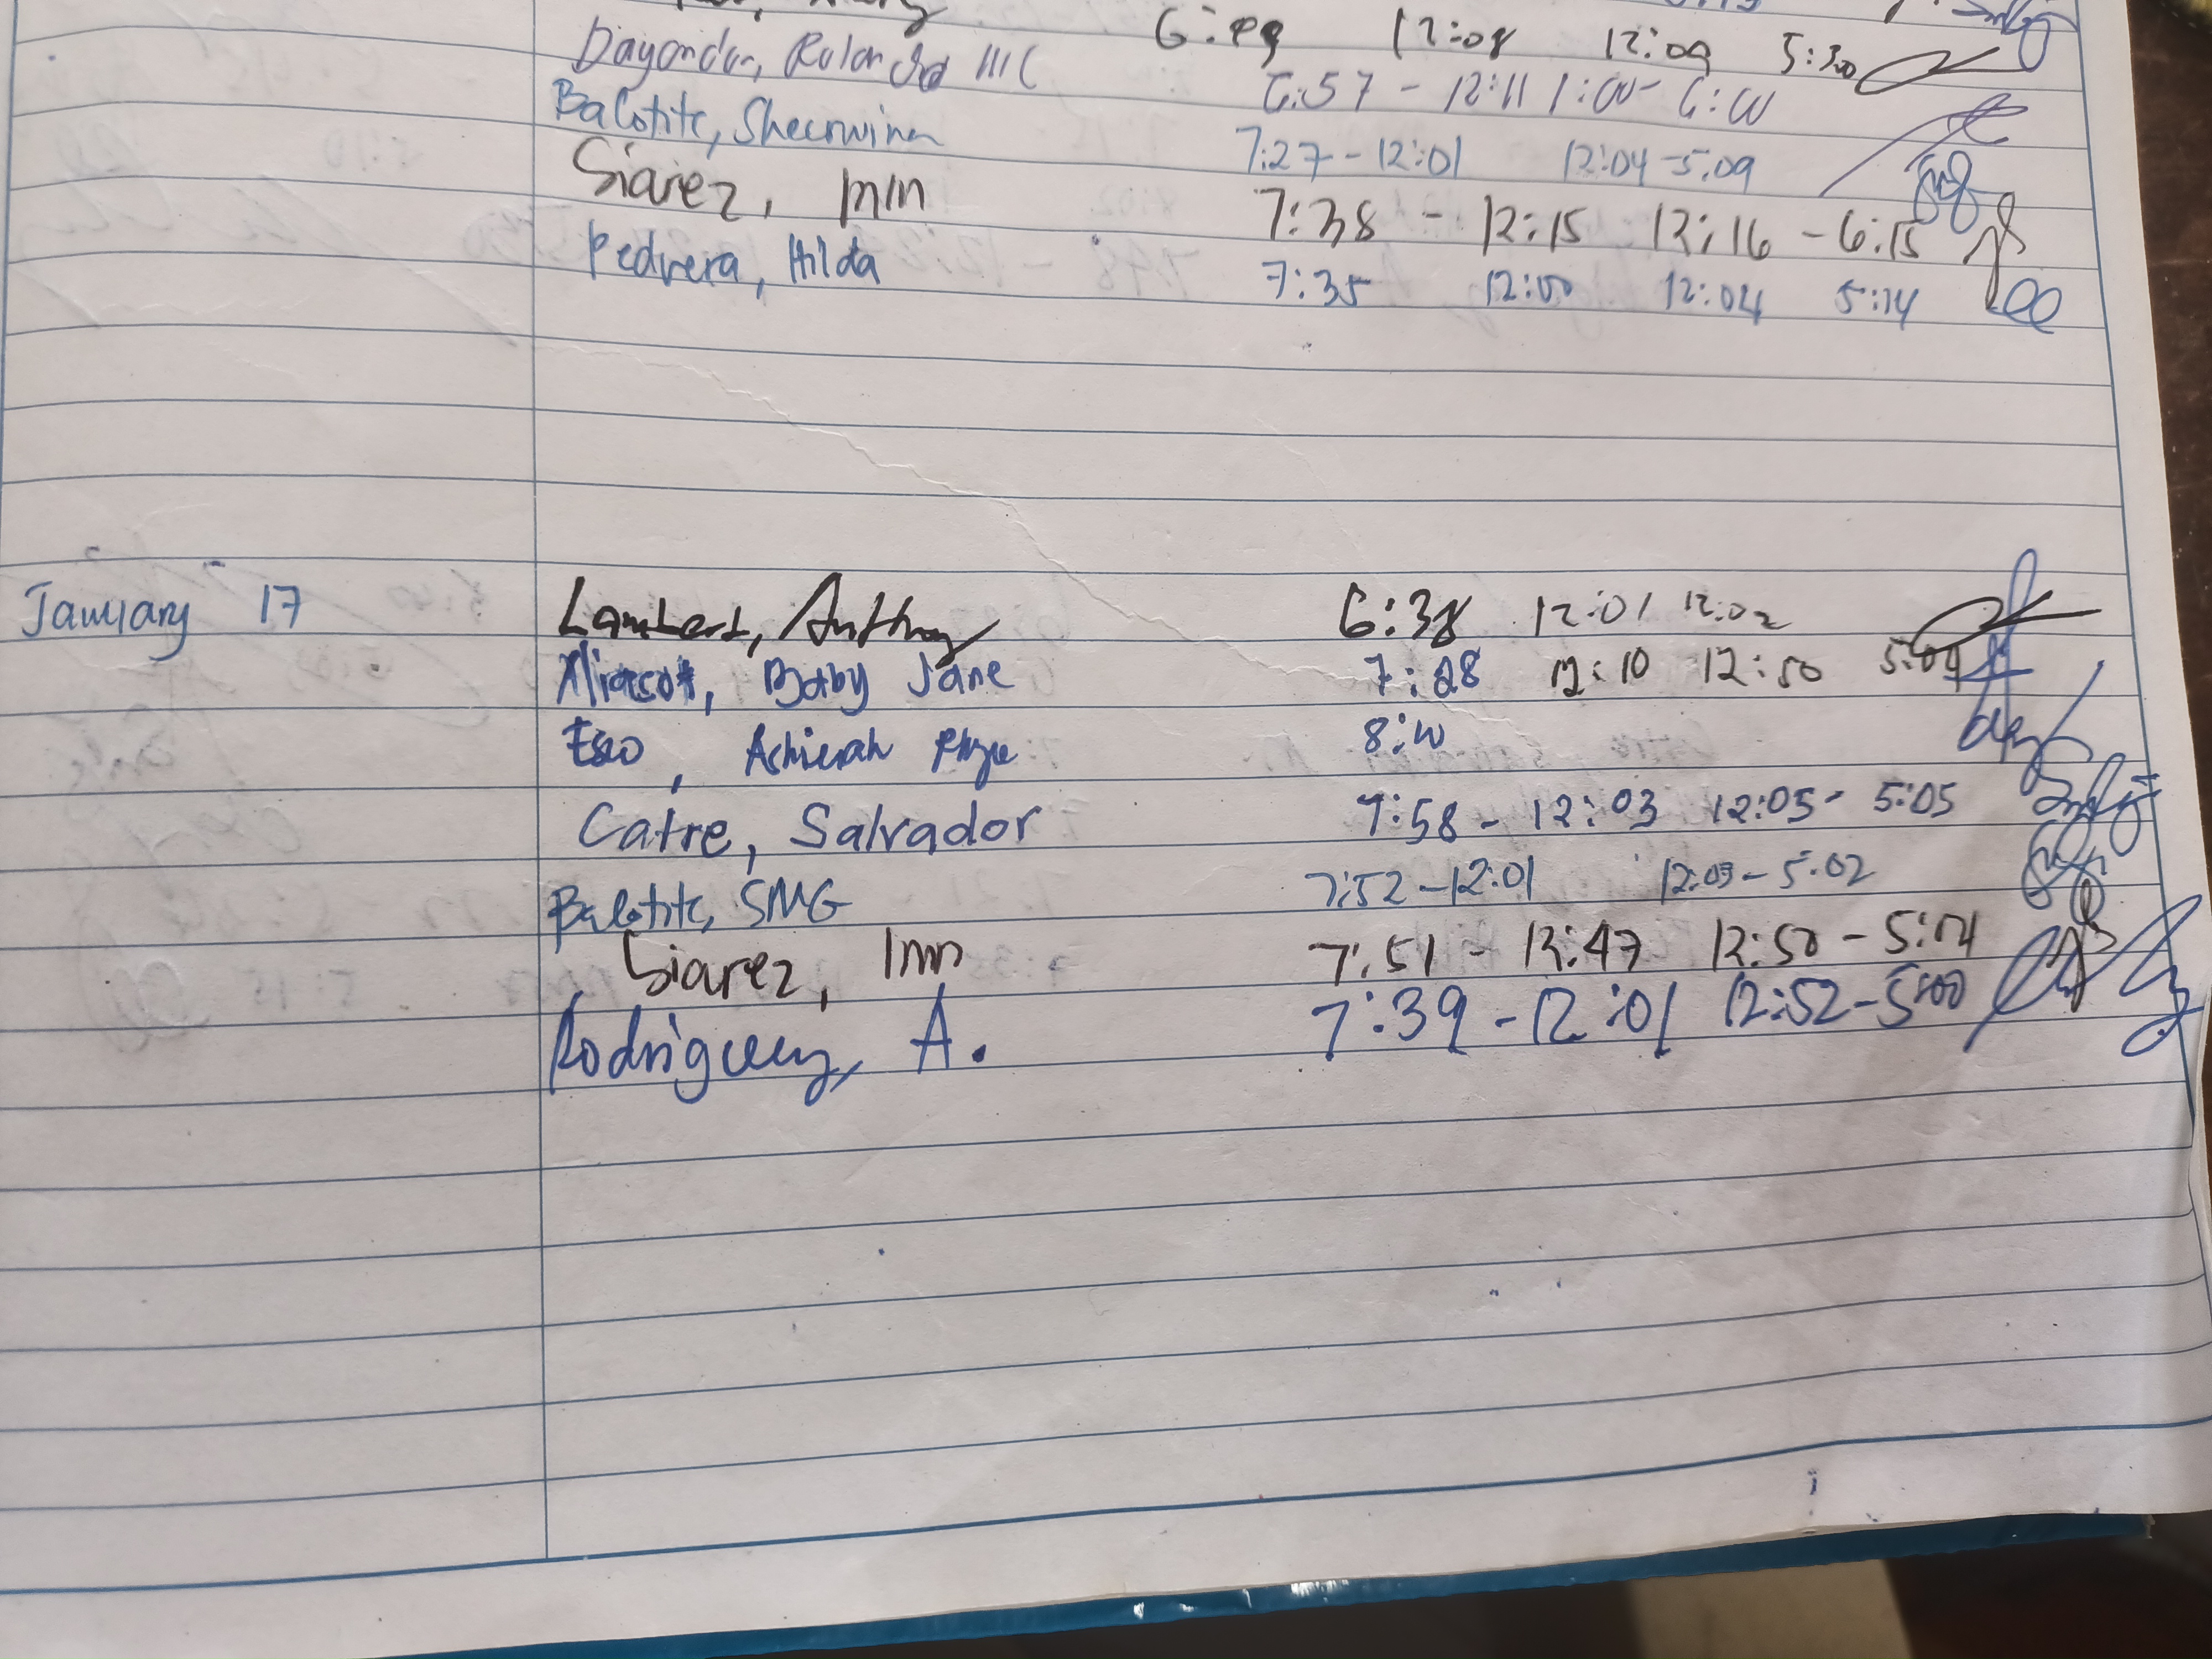 12:08 12:09 5:30
Dayondon, Rolando III C 6:57 - 12:11 1:00 - 6:00
Balotite, Sheerwina 7:27 - 12:01 12:04 - 5:09
Siarez, 7:38 - 12:15 12:16 - 6:15
Pedrera, Hilda 7:35 12:00 12:04 5:14
January 17 Lambert, Anthony 6:38 12:01 12:02
Baby Jane 7:28 12:10 12:50 5:04
8:00
Catre, Salvador 7:58 - 12:03 12:05 - 5:05
Balotite, SMG 7:52 - 12:01 12:03 - 5:02
Siarez, 7:51 - 12:47 12:50 - 5:04
Rodriguez, A. 7:39 - 12:01 12:52 - 5:00